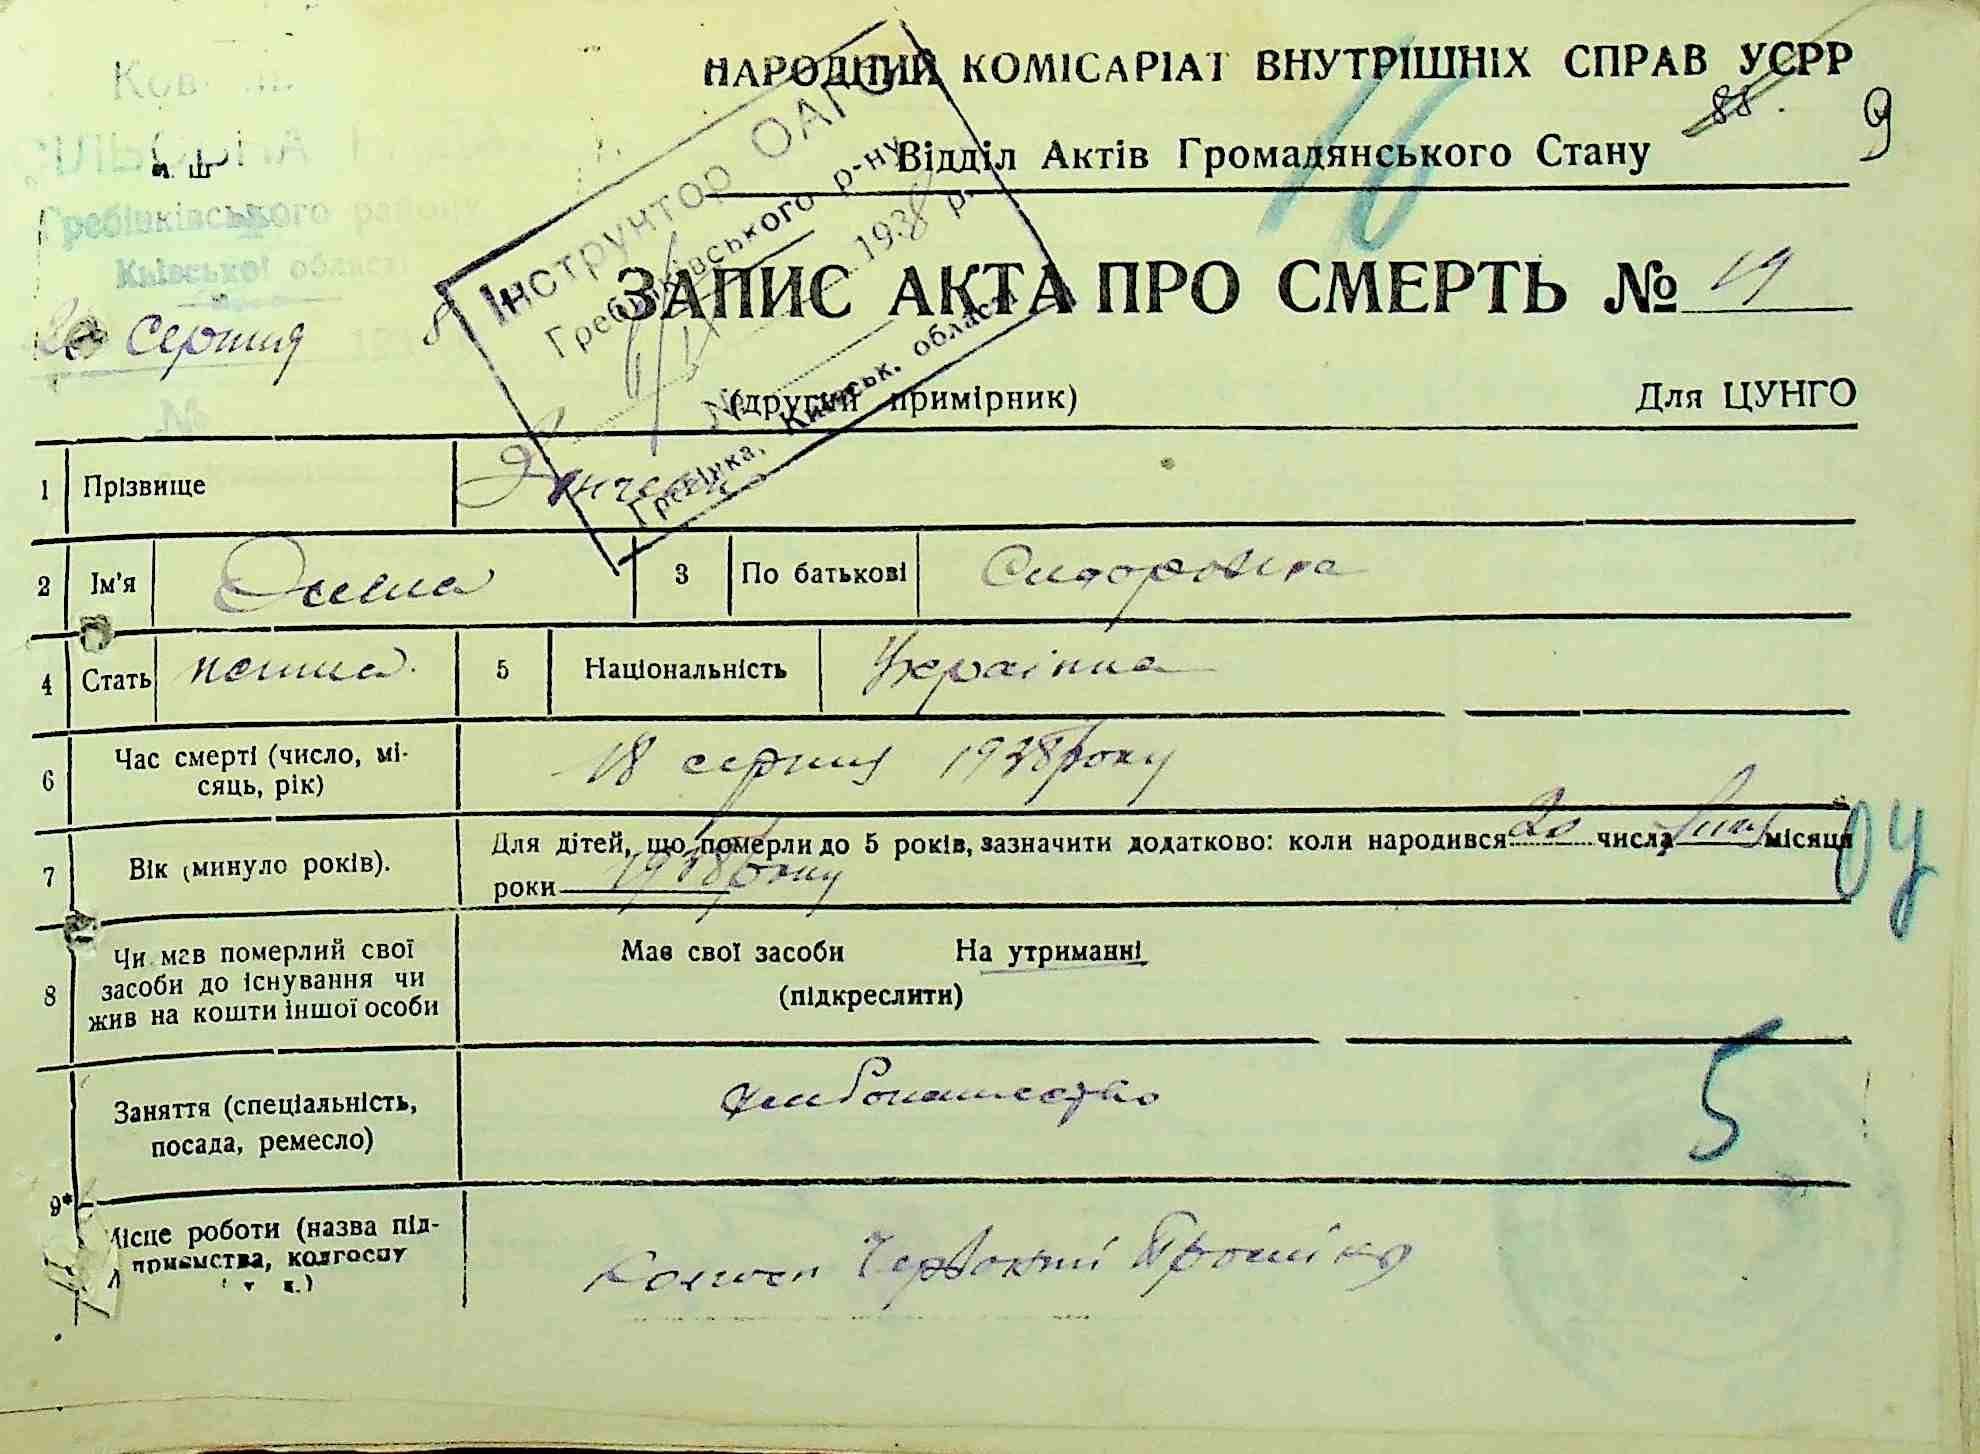 НАРОДНИЙ КОМІСАРІАТ ВНУТРІШНІХ СПРАВ УСРР
88. 9
16
Відділ Актів Громадянського Стану
Гребінківського району
Київської області
20 серпня 193 8
Інструктор ОАГС
Гребінківського р-ну
1938 р.
№
Гребінка, Київськ. області
ЗАПИС АКТА ПРО СМЕРТЬ № 19
(другий примірник) Для ЦУНГО
1 Прізвище
2 Ім'я Олена 3 По батькові Сидоровна
4 Стать жінка 5 Національність Українка
6 Час смерті (число, мі-
сяць, рік) 18 серпня 1938 року
7 Вік (минуло років). Для дітей, що померли до 5 років, зазначити додатково: коли народився 20 числа місяця
роки 1938 року
04
8 Чи мав померлий свої
засоби до існування чи
жив на кошти іншої особи
Має свої засоби На утриманні
(підкреслити)
Заняття (спеціальність,
посада, ремесло)
5
9*
Місце роботи (назва під-
приємства, колгоспу
і т. д.) Колгосп Червоний Промінь